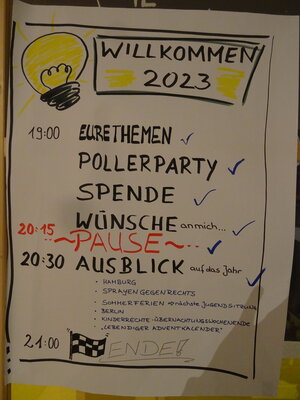 WILLKOMMEN
2023
19:00 EURE THEMEN
POLLERPARTY
SPENDE
WÜNSCHE an mich...
20:15 ~PAUSE~
20:30 AUSBLICK auf das Jahr
• HAMBURG
• SPRAYEN GEGEN RECHTS
• SOMMERFERIEN → nächste JUGENDSITZUNG
• BERLIN
• KINDERRECHTE-ÜBERNACHTUNGSWOCHENENDE
• „LEBENDIGER ADVENTKALENDER"
21:00 ENDE!